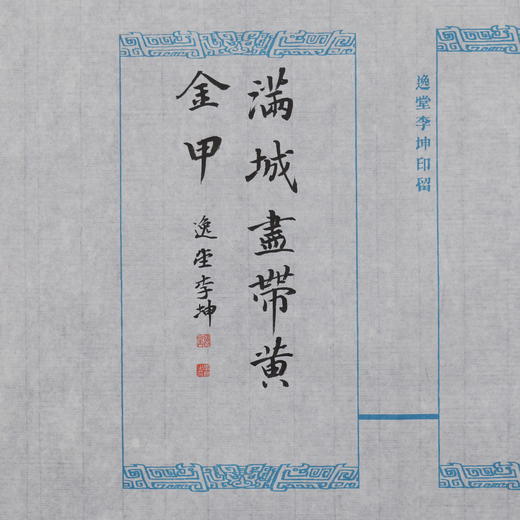 逸堂李坤印留
满城盡帶黄
金甲
逸堂李坤